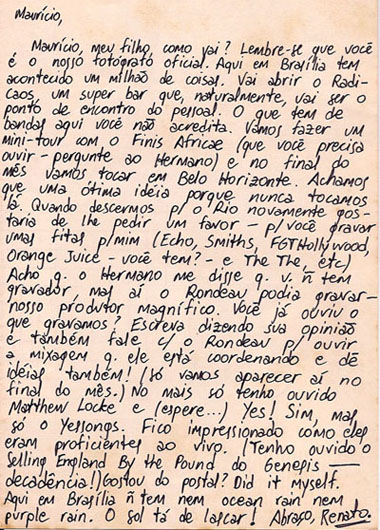 Maurício,
Maurício, meu filho, como vai? Lembre-se que você
é o nosso fotógrafo oficial. Aqui em Brasília tem
acontecido um milhão de coisas. Vai abrir o Radi-
Caos, um super bar que, naturalmente, vai ser o
ponto de encontro do pessoal. O que tem de
bandas aqui você não acredita. Vamos fazer um
mini-tour com o Finis Africae (que você precisa
ouvir - pergunte ao Hermano) e no final do
mês vamos tocar em Belo Horizonte. Achamos
que uma ótima idéia porque nunca tocamos
lá. Quando descermos p/ o Rio novamente gos-
taria de lhe pedir um favor - p/ você gravar
umas fitas p/mim (Echo, Smiths, FGTHollywood,
Orange Juice - você tem? - e The The, etc)
Acho q. o Hermano me disse q. v. ñ tem
gravador, mas aí o Rondeau podia gravar-
nosso produtor magnífico. Você já ouviu o
que gravamos? Escreva dizendo sua opinião
e também fale c/ o Rondeau p/ ouvir
a mixagem q. ele está coordenando e dê
idéias também! (só vamos aparecer aí no
final do mês.) No mais só tenho ouvido
Matthew Locke e (espere...) Yes! Sim, mas
só o Yessongs. Fico impressionado como eles
eram proficientes ao vivo. (Tenho ouvido o
Selling England By the Pound do Genesis —
decadência!) Gostou do postal? Did it myself.
Aqui em Brasília ñ tem nem ocean rain nem
purple rain. O sol tá de lascar! Abraço, Renato.